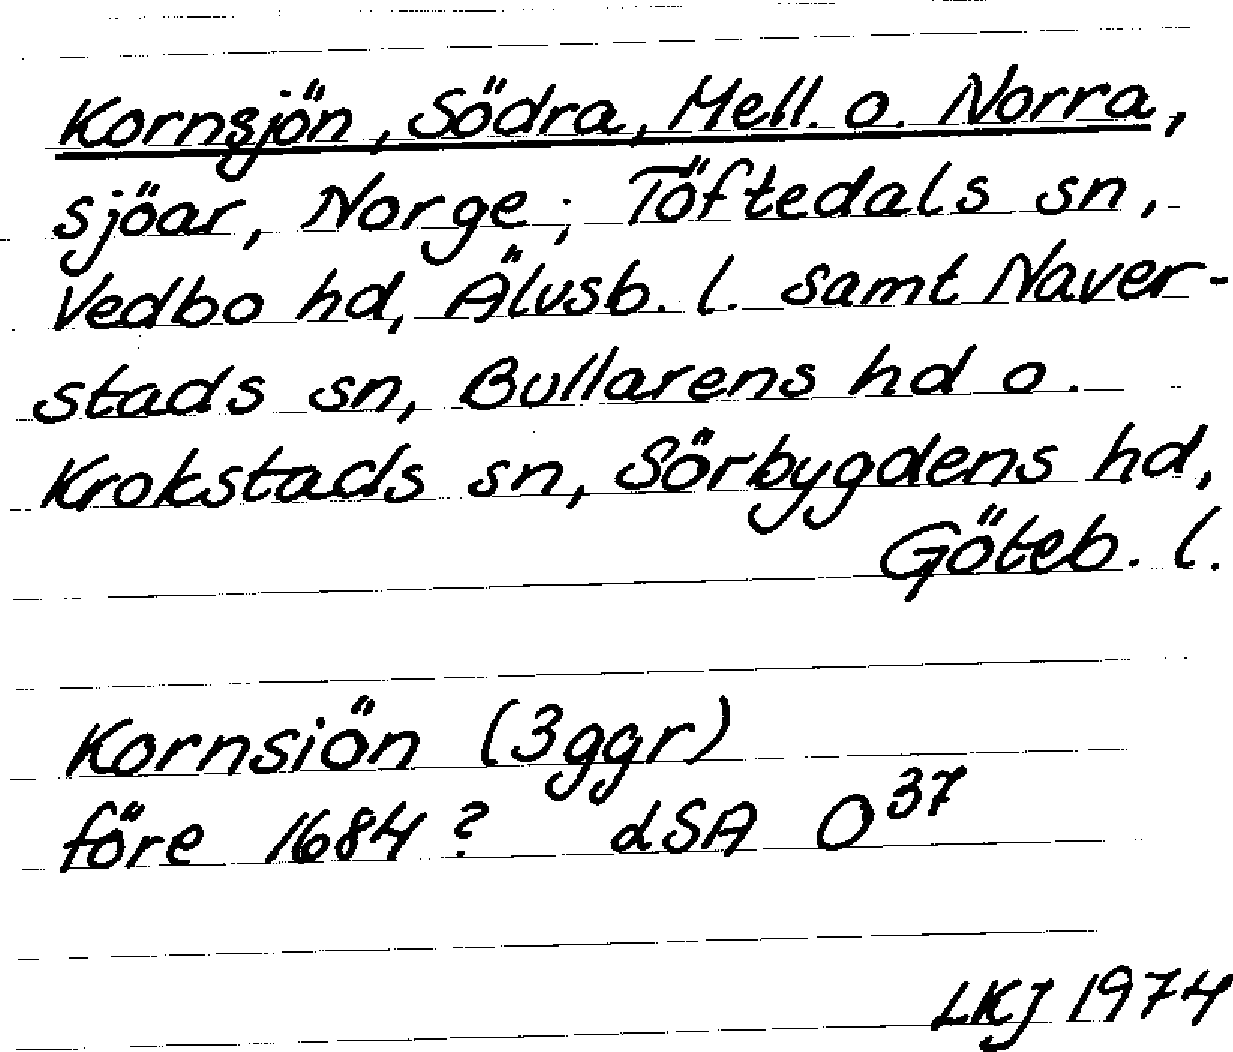 Kornsjön, Södra, Mell. o. Norra,
sjöar, Norge; Töftedals sn,
Vedbo hd, Älvsb. l. samt Naver-
stads sn, Bullarens hd o.
Krokstads sn, Sörbygdens hd,
Göteb. l.
Kornsiön (3ggr)
före 1684? dSA O³⁷
LKJ 1974